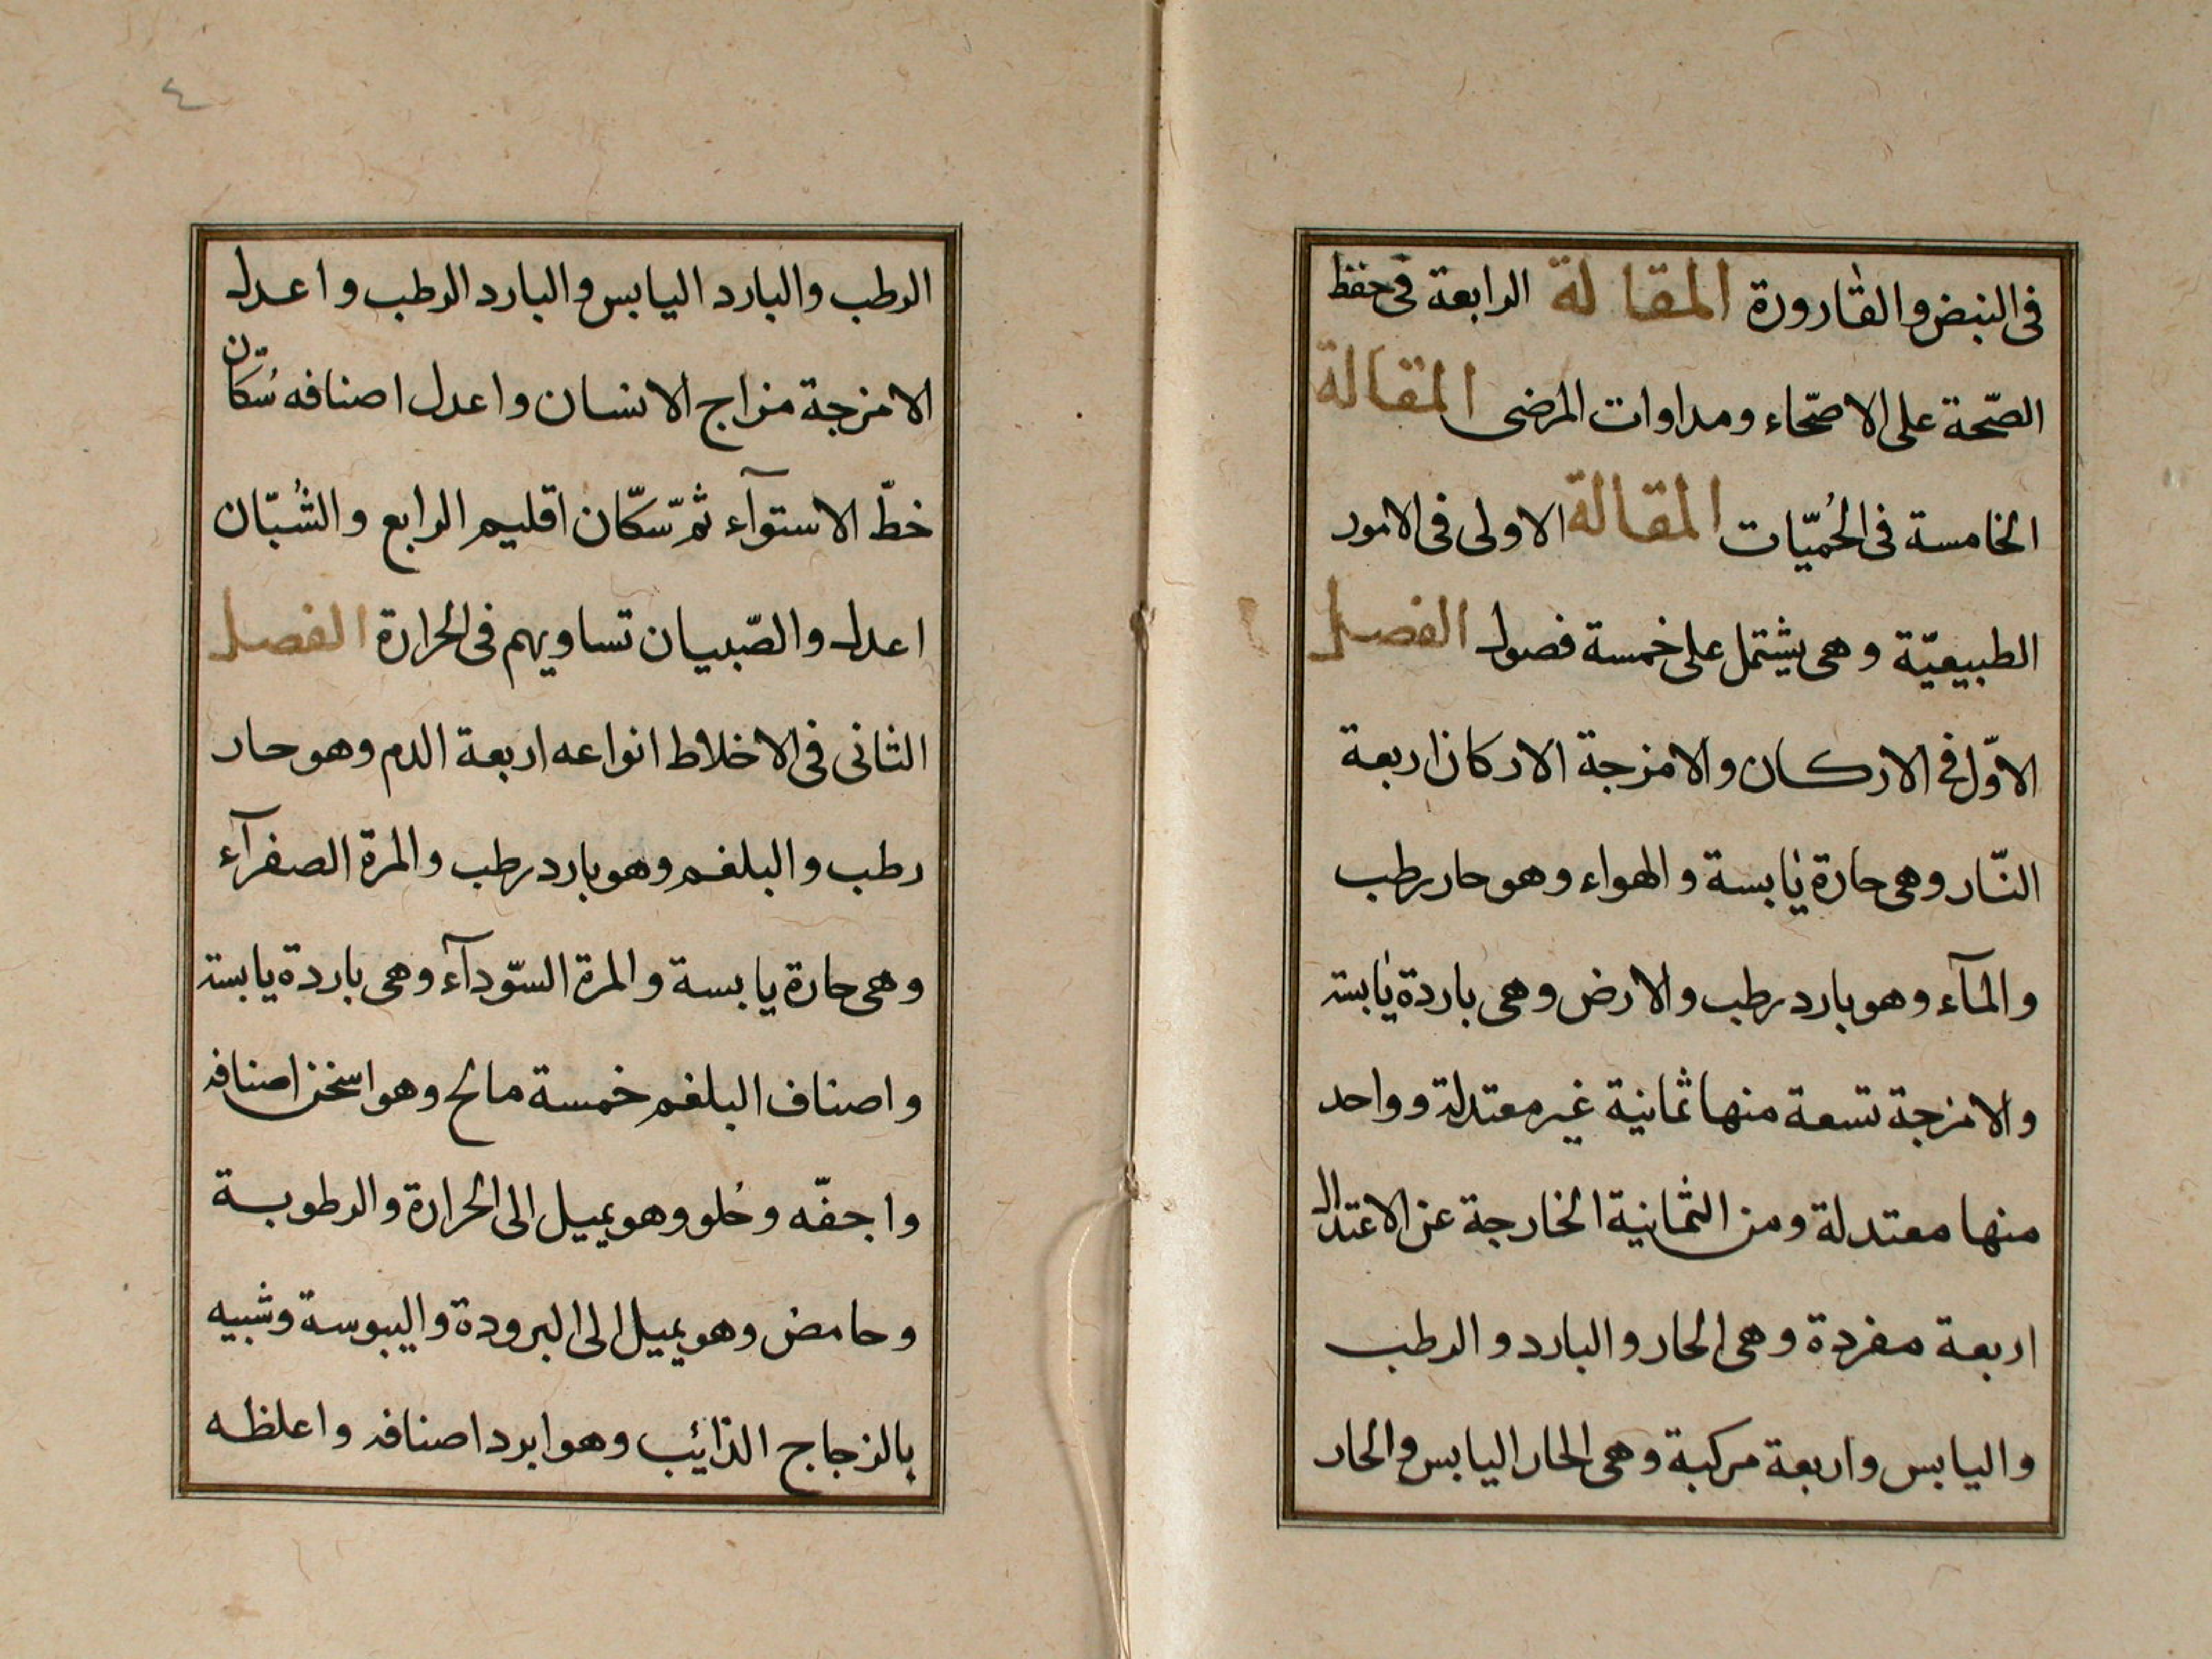 فى النبض والقارورة المقالة الرابعة فى حفظ
الصّحة على الاصحّاء ومداوات المرضى المقالة
الخامسة فى الحُميّات المقالة الاولى فى الامور
الطبيعيّة وهى يشتمل على خمسة فصول الفصل
الاوّل فى الاركان والامزجة الاركان اربعة
النّار وهى حارة يابسة والهواء وهو حار رطب
والمآء وهو بارد رطب والارض وهى باردة يابسة
والامزجة تسعة منها ثمانية غير معتدلة وواحد
منها معتدلة ومن الثمانية الخارجة عن الاعتدال
اربعة مفردة وهى الحار والبارد والرطب
واليابس واربعة مركبة وهى الحار اليابس والحار
٤
الرطب والبارد اليابس والبارد الرطب واعدل
الامزجة مزاج الانسان واعدل اصنافه سُكّان
خطّ الاستوآء ثمّ سكّان اقليم الرابع والشُبّان
اعدل والصّبيان تساويهم فى الحرارة الفصل
الثانى فى الاخلاط انواعه اربعة الدم وهو حار
رطب والبلغم وهو بارد رطب والمرة الصفرآء
وهى حارة يابسة والمرة السّودآء وهى باردة يابسة
واصناف البلغم خمسة مالح وهو اسخن اصنافه
واجفّه وحُلو وهو يميل الى الحرارة والرطوبة
وحامض وهو يميل الى البرودة واليبوسة وشبيه
بالزجاج الذائب وهو ابرد اصنافه واعلظه